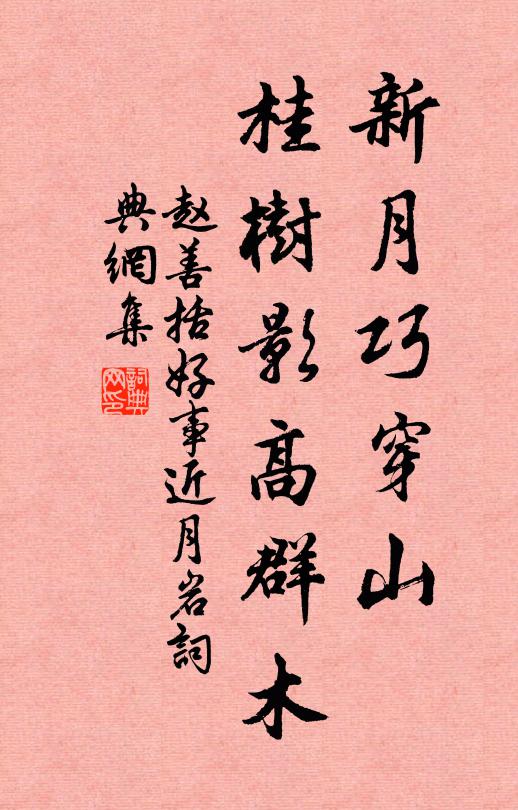 新月巧穿山
桂樹影高群木
赵善括好事近月岩詞
典網集
詞典
网印